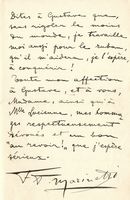 Dites à Gustave que,
sans rigoler le moins
du monde, je travaille
moi aussi pour le ruban
qu'il m'aidera, je l'espère,
à conquérir !
Toute mon affection
à Gustave, et à vous,
Madame, ainsi qu'à
Mlle Lucienne, mes hommages
respectueusement
dévoués et un bon
"au revoir" que j'espère
sérieux.
F. T. Marinetti